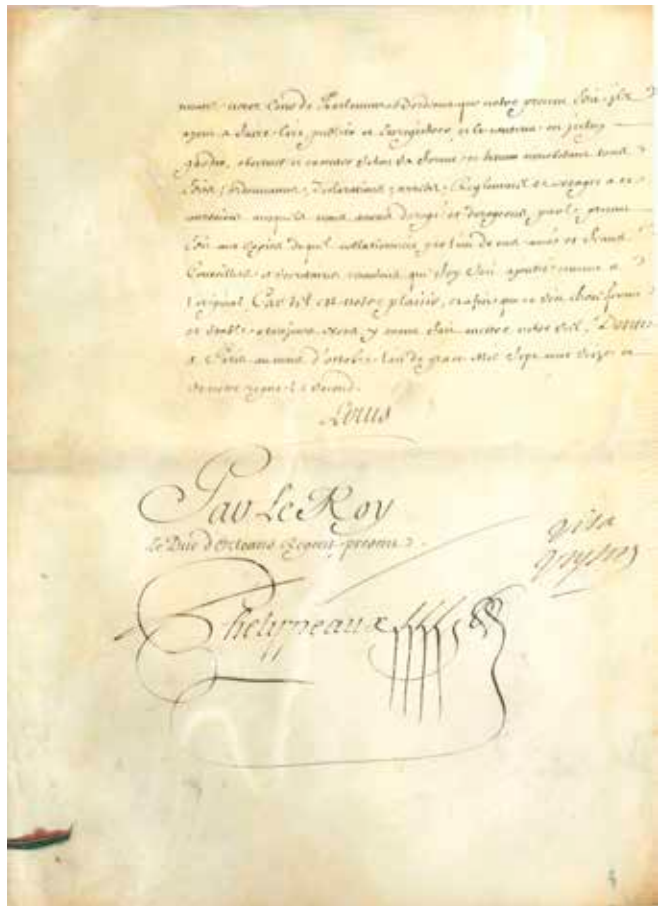 notre Cour de Parlement de Bordeaux que notre present Edit ils
ayent a faire lire, publier et enregistrer, et le contenu en iceluy
garder, observer et executer selon sa forme et teneur nonobstant tous
Edits, Ordonnances, Declarations, arrests, Reglemens et usages a ce
contraires ausquels nous avons derogé et derogeons par le present
Edit aux copies duquel collationnées par l'un de nos amés et feaux
Conseillers et Secretaires voulons que foy soit ajoutée comme a
l'original, Car tel est notre plaisir, et afin que ce soit chose ferme
et stable a toujours Nous y avons fait mettre notre scel, Donné
a Paris au mois d'octobre l'an de grace Mil Sept cent Seize et
de notre regne le second.
Louis
Par Le Roy
Le Duc d'Orleans Regent present
Phelypeaux
visa